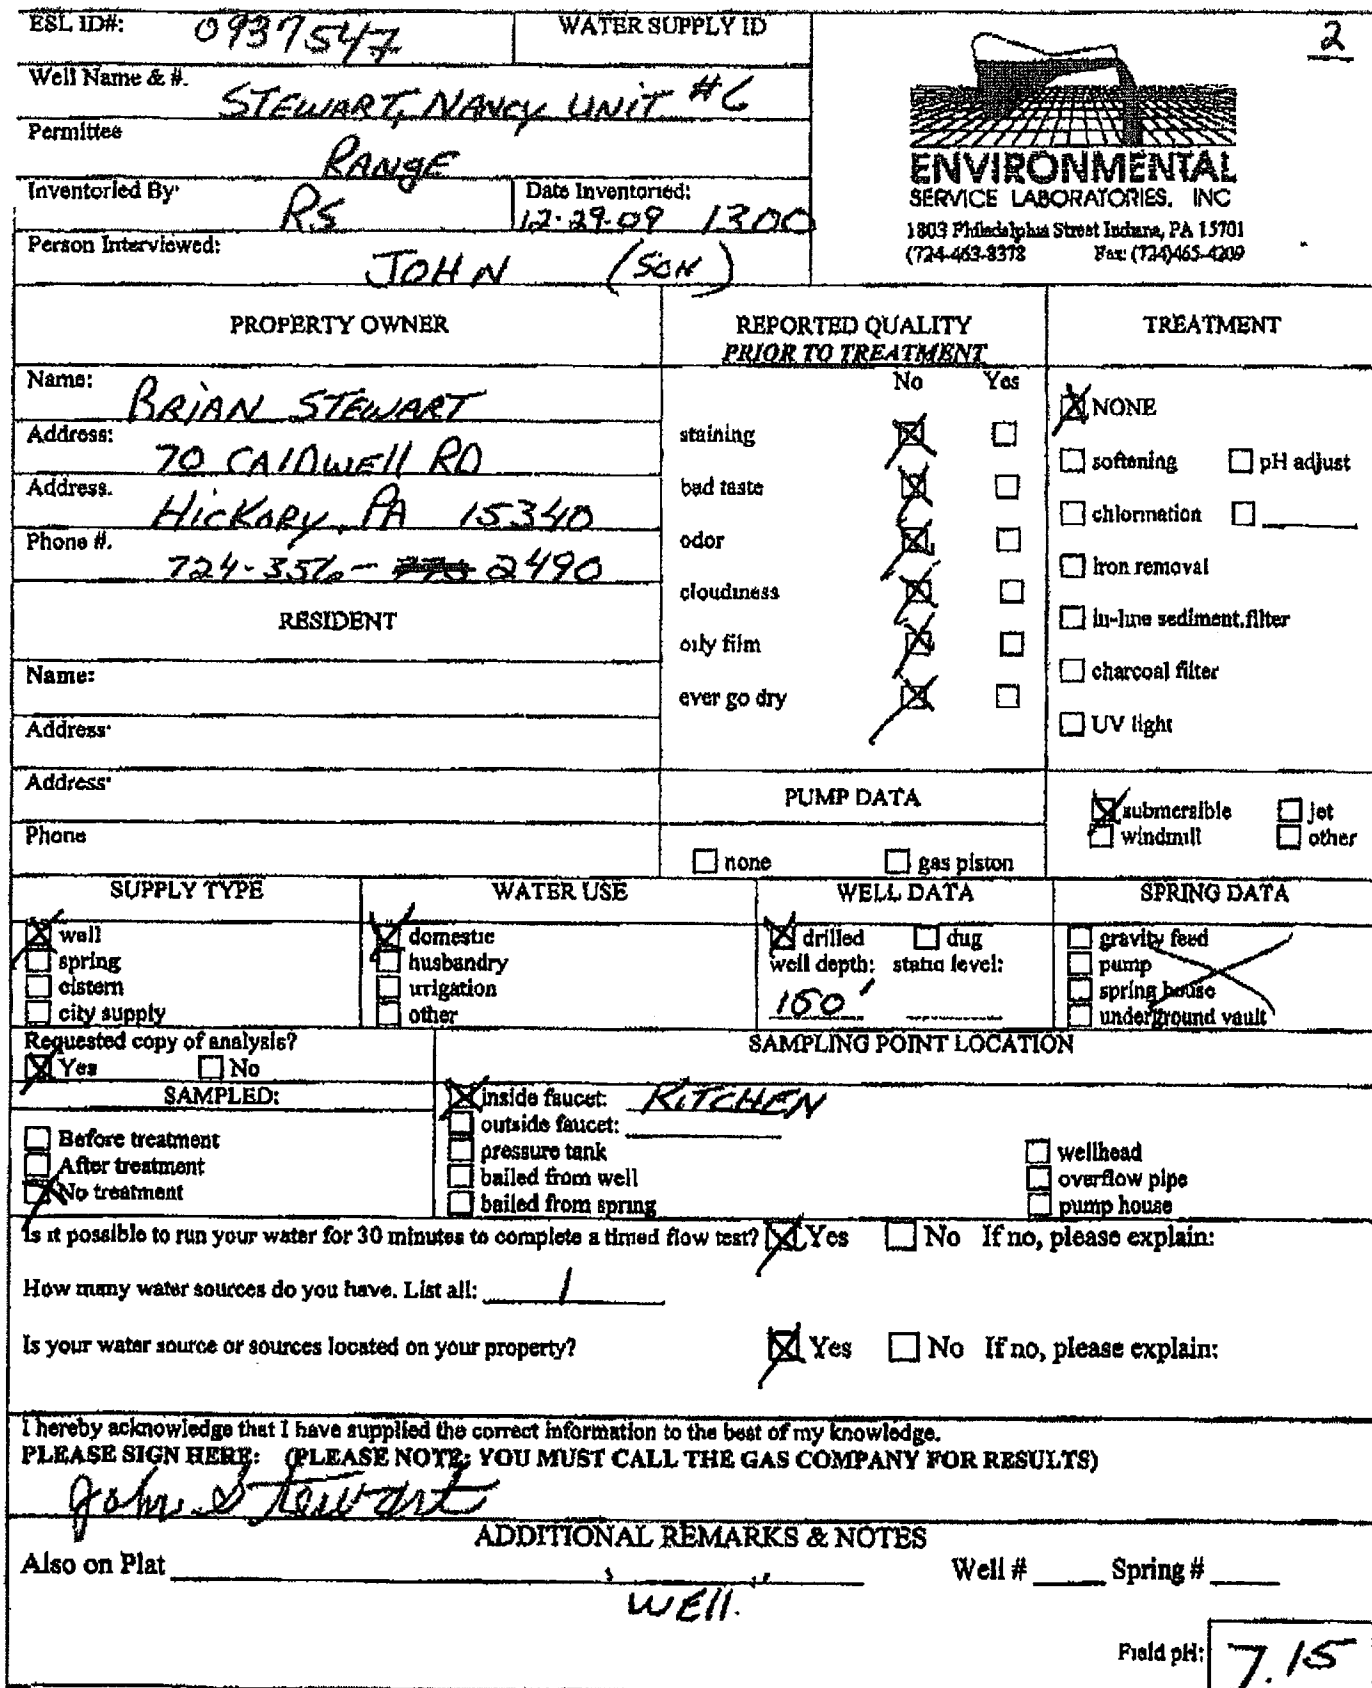 ESL ID#: 0937547 WATER SUPPLY ID
2
Well Name & #. STEWART, NANCY UNIT #6
Permittee RANGE
Inventoried By: RS Date Inventoried: 12-29-09 1300
Person Interviewed: JOHN (SON)
ENVIRONMENTAL
SERVICE LABORATORIES, INC
1803 Philadelphia Street Indiana, PA 15701
(724-463-8378 Fax: (724)465-4209
PROPERTY OWNER
Name: BRIAN STEWART
Address: 70 CALDWELL RD
Address. HICKORY, PA 15340
Phone #. 724-356- 2490
RESIDENT
Name:
Address:
Address:
Phone
REPORTED QUALITY
PRIOR TO TREATMENT
No Yes
staining
bad taste
odor
cloudiness
oily film
ever go dry
TREATMENT
NONE
softening pH adjust
chlorination
iron removal
in-line sediment.filter
charcoal filter
UV light
PUMP DATA
none gas piston
submersible jet
windmill other
SUPPLY TYPE
well
spring
cistern
city supply
WATER USE
domestic
husbandry
irrigation
other
WELL DATA
drilled dug
well depth: static level:
150'
SPRING DATA
gravity feed
pump
spring house
underground vault
Requested copy of analysis?
Yes No
SAMPLED:
Before treatment
After treatment
No treatment
SAMPLING POINT LOCATION
inside faucet: KITCHEN
outside faucet:
pressure tank
bailed from well
bailed from spring
wellhead
overflow pipe
pump house
Is it possible to run your water for 30 minutes to complete a timed flow test? Yes No If no, please explain:
How many water sources do you have. List all: 1
Is your water source or sources located on your property? Yes No If no, please explain:
I hereby acknowledge that I have supplied the correct information to the best of my knowledge.
PLEASE SIGN HERE: (PLEASE NOTE: YOU MUST CALL THE GAS COMPANY FOR RESULTS)
John Stewart
ADDITIONAL REMARKS & NOTES
Also on Plat Well # Spring #
WELL.
Field pH: 7.15